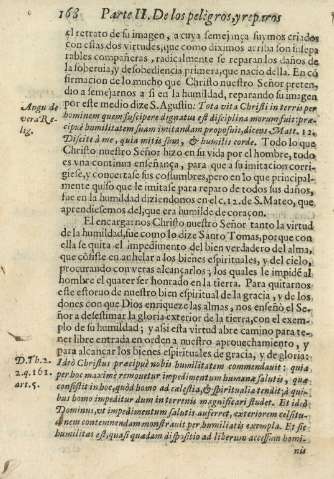 168 Parte II. De los peligros, y reparos
el retrato de su imagen, a cuya semejança fuymos criados
con estas dos virtudes, que como diximos arriba son insepa
rables compañeras, radicalmente se reparan los daños de
la soberuia, y desobediencia primera, que nacio della. En cõ
firmacion de lo mucho que Christo nuestro Señor preten-
dio asemejarnos a si en la humildad, reparando su imagen
por este medio dize S. Agustin: Tota vita Christi in terris per
hominem quem suscipere dignatus est disciplina morum fuit: præ-
cipuè humilitatem suam imitandam proposuit, dicens Matt. 12.
Discite à me, quia mitis sum, & humilis corde. Todo lo que
Christo nuestro Señor hizo en su vida por el hombre, todo
es vna continua enseñança, para que a su imitacion corri-
giese, y concertase sus costumbres, pero en lo que principal-
mente quiso que le imitase para reparo de todos sus daños,
fue en la humildad diziendonos en el c. 12. de S. Mateo, que
aprendiesemos del, que era humilde de coraçon.
El encargarnos Christo nuestro Señor tanto la virtud
de la humildad, fue como lo dize Santo Tomas, porque con
ella se quita el impedimento del bien verdadero del alma,
que cõsiste en anhelar a los bienes espirituales, y del cielo,
procurando con veras alcançarlos; los quales le impide al
hombre el querer ser honrado en la tierra. Para quitarnos
este estoruo de nuestro bien espiritual de la gracia, y de los
dones con que Dios enriquece las almas, nos enseñó el Se-
ñor a desestimar la gloria exterior de la tierra, con el exem-
plo de su humildad; y assi esta virtud abre camino para te-
ner libre entrada en orden a nuestro aprouechamiento, y
para alcançar los bienes espirituales de gracia, y de gloria:
Ideò Christus præcipuè nobis humilitatem commendauit: quia
per hoc maximè remouetur impedimentum humanæ salutis, quæ
consistit in hoc, quòd homo ad cælestia, & spiritualia tendit, à qui-
bus homo impeditur dum in terrenis magnificari studet. Et ideò
Dominus, vt impedimentum salutis auferret, exteriorem celsitu-
dinem contemnendam monstrauit per humilitatis exempla. Et sic
humilitas est, quasi quædam dispositio ad liberum accessum homi-
nis
Augu. de
vera Re-
lig.
D. Th. 2.
2. q. 161.
art. 5.